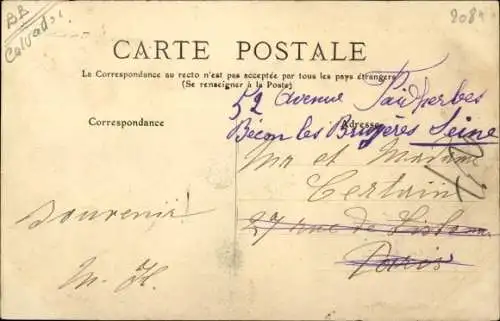 BB
Calvados.
208
CARTE POSTALE
La Correspondance au recto n'est pas acceptée par tous les pays étrangers
(Se renseigner à la Poste)
52 avenue Faidherbes
Bécon les Bruyères Seine
Correspondance
Adresse
Mr et Madame
Certain
27 rue de
Paris
Souvenir
M. H.